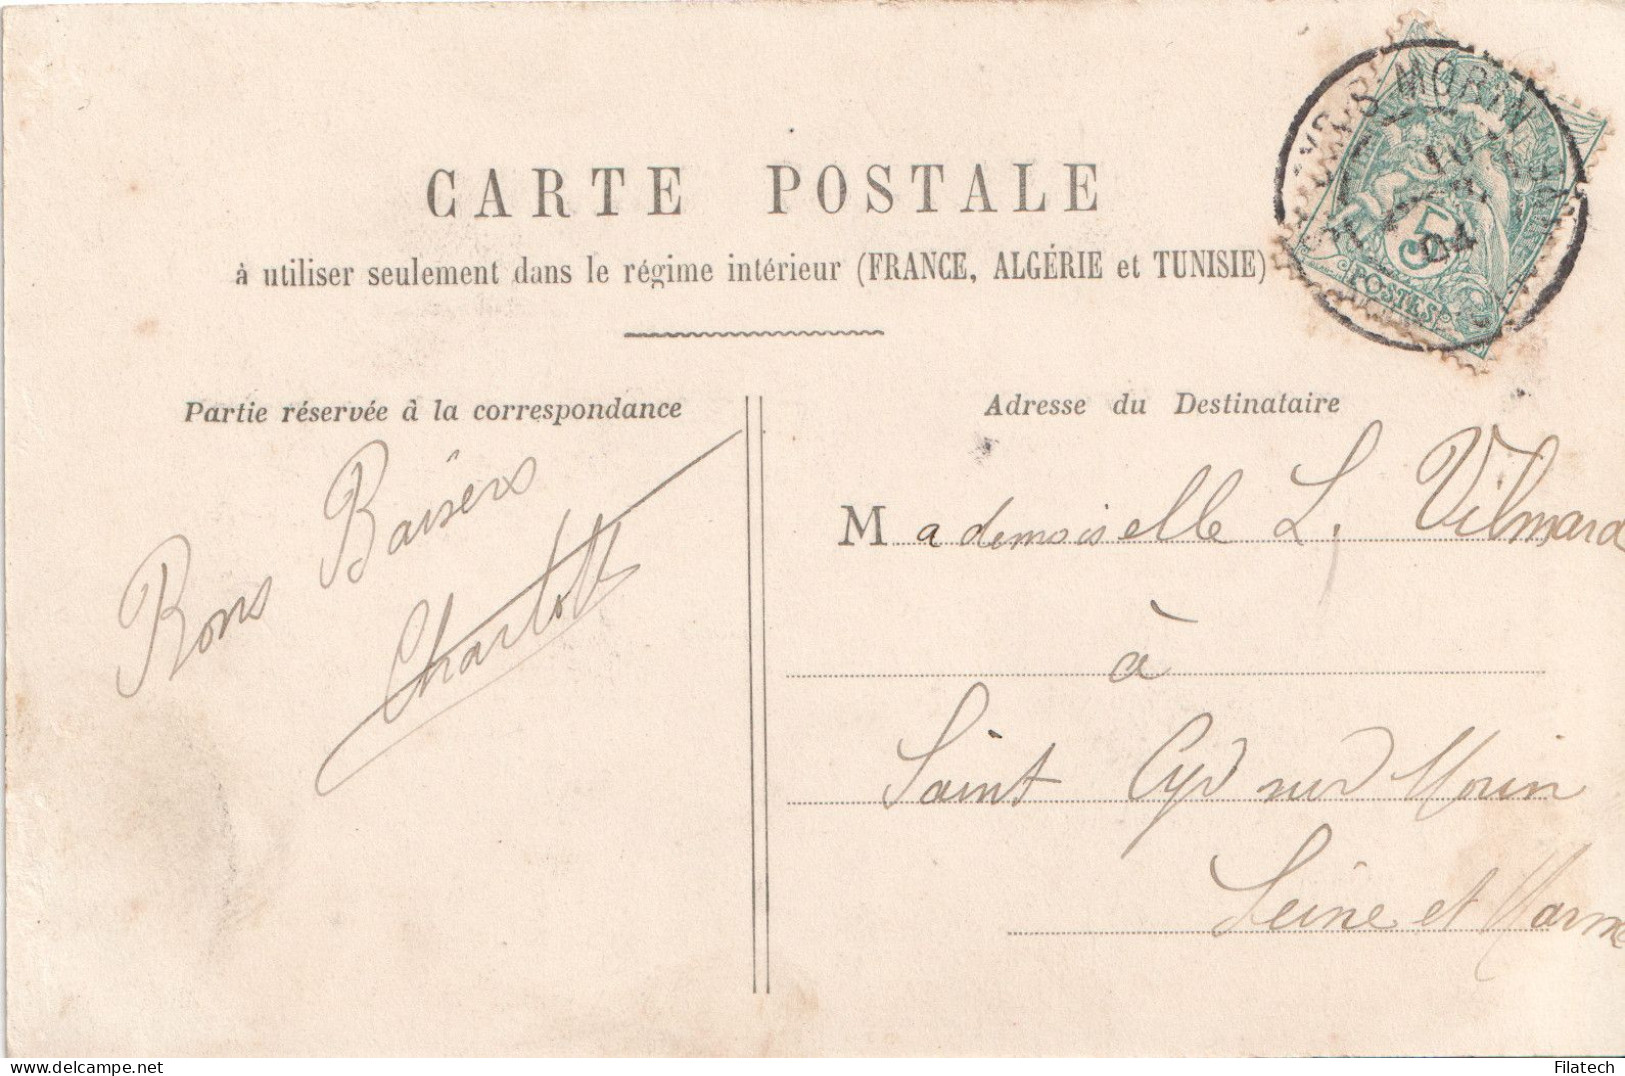 CARTE POSTALE
à utiliser seulement dans le régime intérieur (FRANCE, ALGÉRIE et TUNISIE)
Partie réservée à la correspondance
Bons Baisers
Charlotte
Adresse du Destinataire
Mademoiselle L. Vilmard
à
Saint Cyr sur Morin
Seine et Marne
MORIN
04
5
POSTES
Filatech